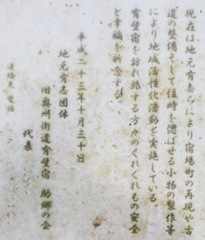 現在は地元有志らにより宿場町の再現や古
道の整備そして往時を偲ばせる小物の製作等
により地域活性化活動を実施している。
有壁宿を訪れ旅する方々のくれぐれもの安全
と幸福を祈念す
平成二十三年十月三十日
地元有志団体
旧奥州街道有壁宿 助郷の会
代表
連絡先 電話